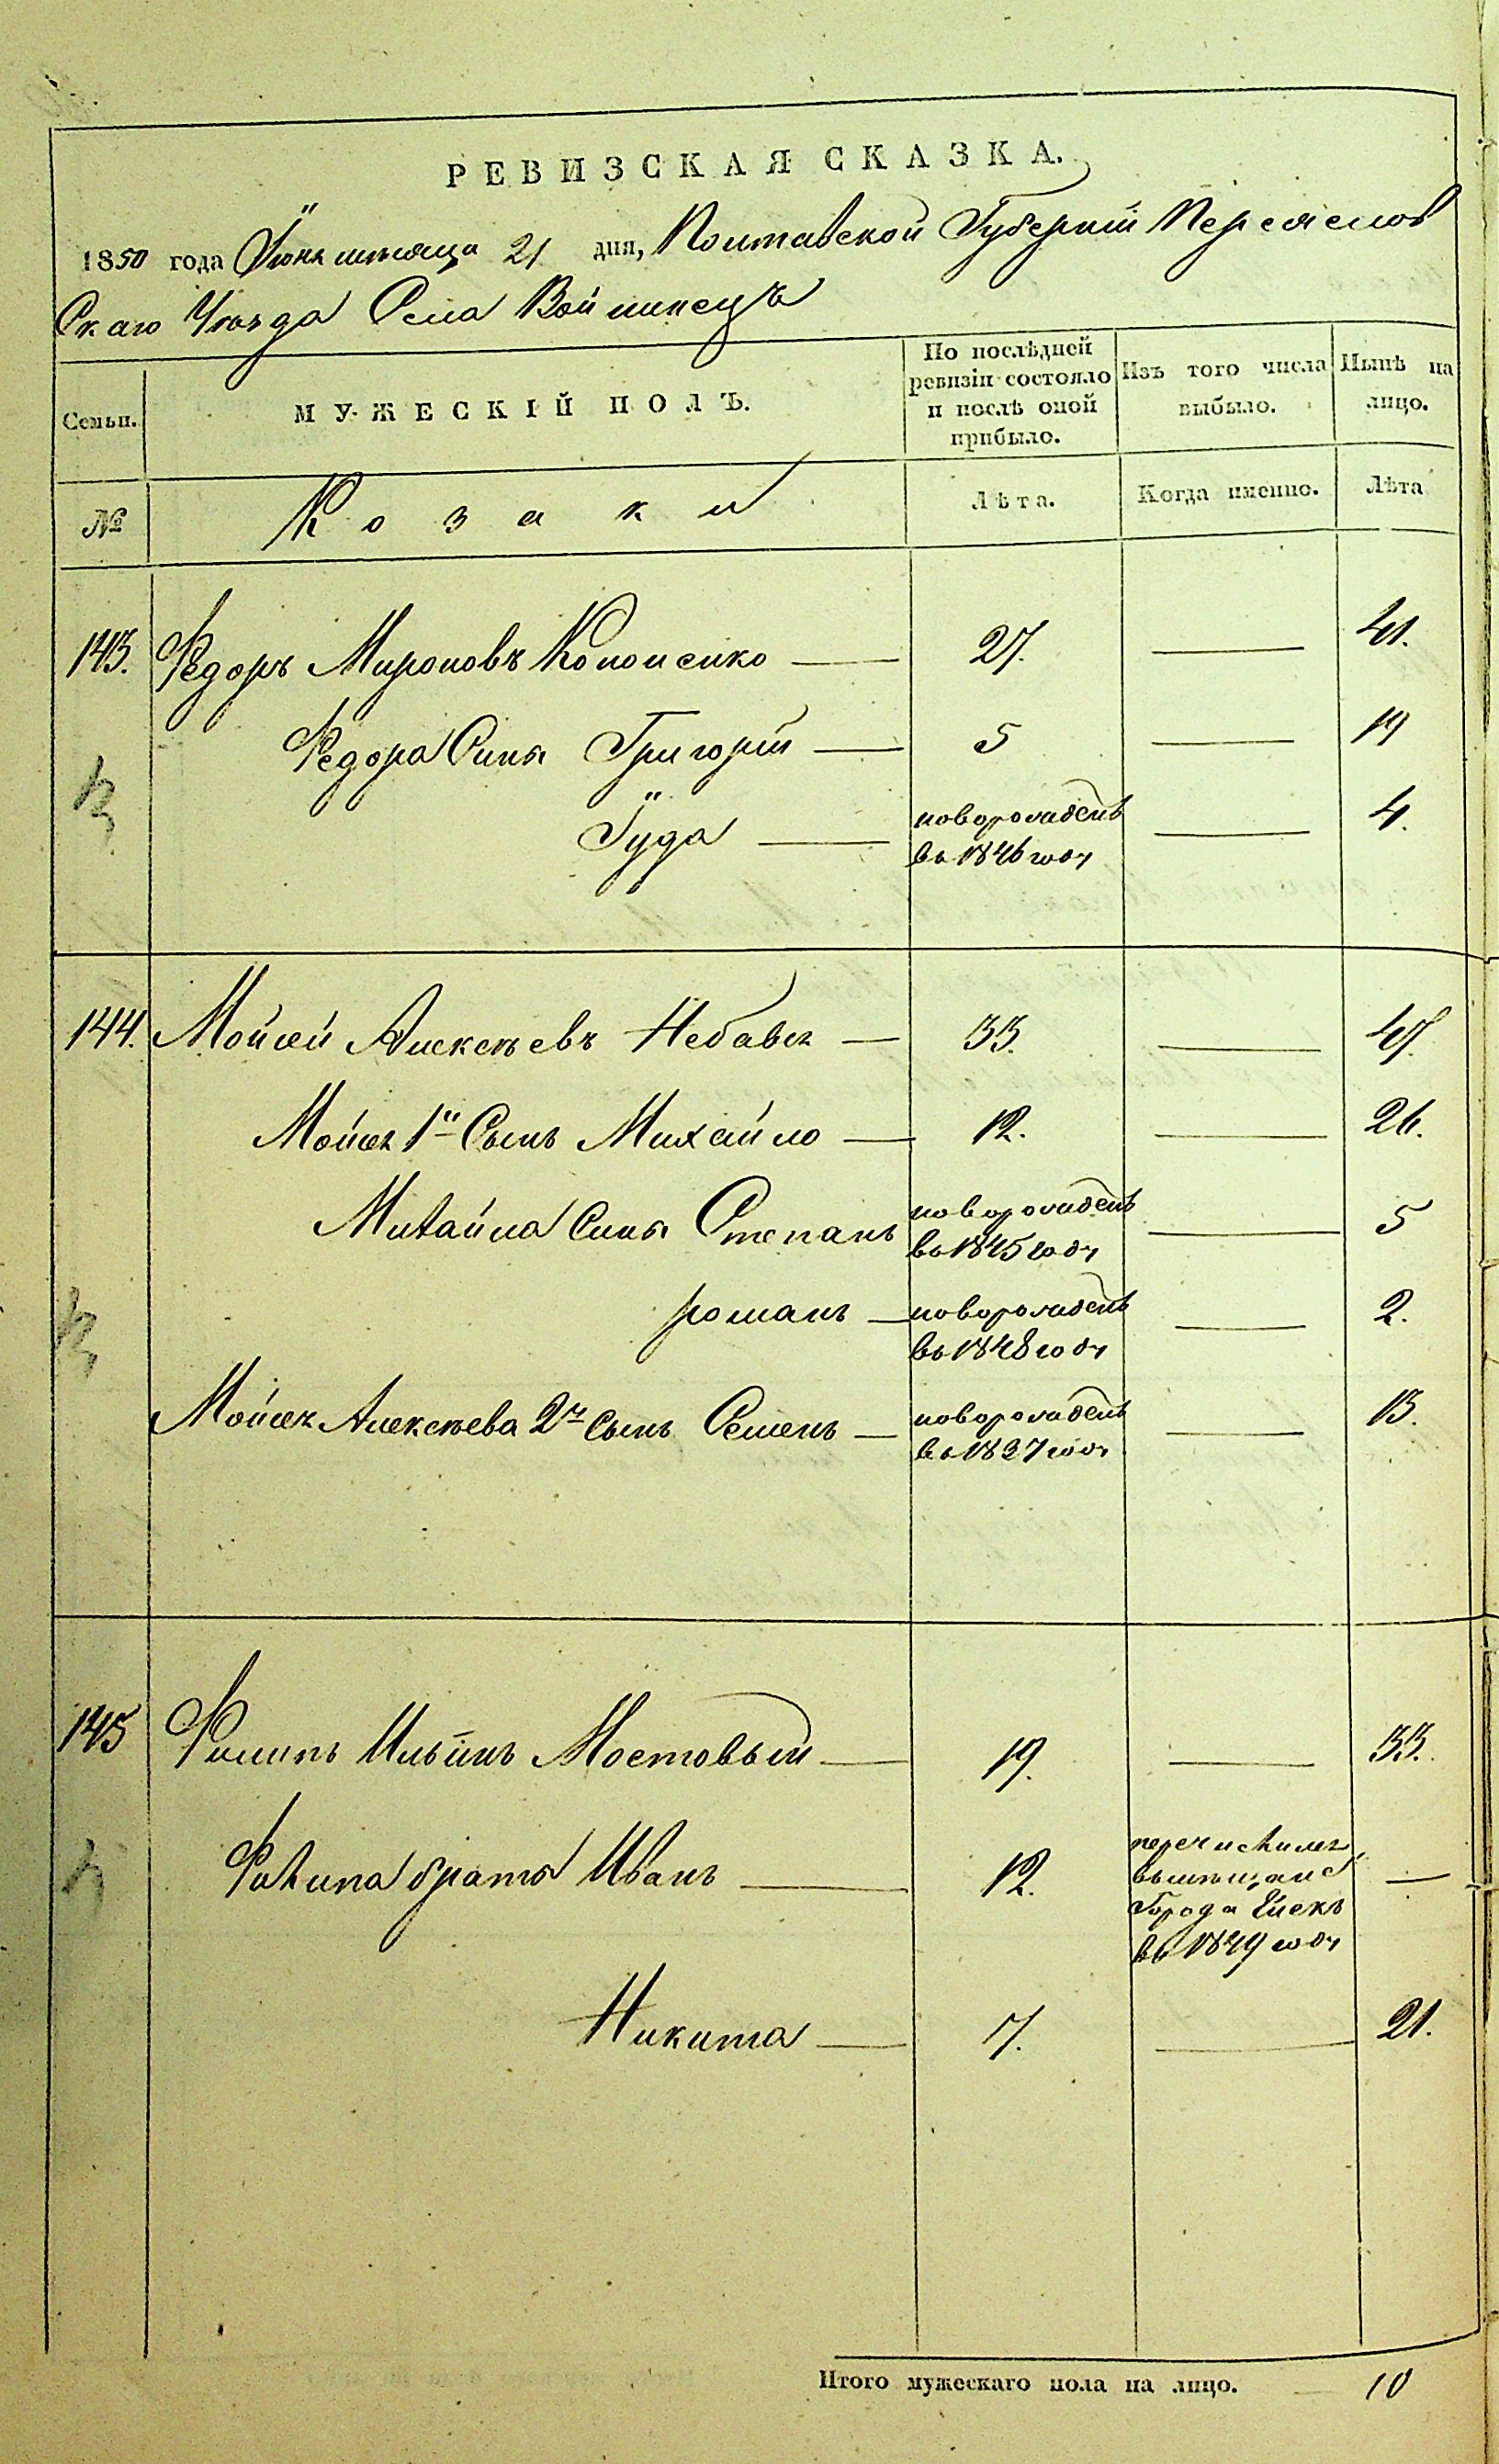 РЕВИЗСКАЯ СКАЗКА.
1850 года Іюня мѣсяца 21 дня, Полтавской Губерніи Переяслов
Скаго Уѣзда Села Войтинецъ
Семьи.
МУЖЕСКІЙ ПОЛЪ.
По послѣдней ревизіи состояло и послѣ оной прибыло.
Изъ того числа выбыло.
Нынѣ на лицо.
№
Козаки
Лѣта.
Когда именно.
Лѣта
143. Федоръ Мироновъ Кононенко — 27. — 41.
Федора Сынъ Григорій — 5 — 19
Іуда — новорожденъ въ 1846 году — 4.
144. Мойсей Алексѣевъ Небавск — 33. — 47.
Мойсея 1й Сынъ Михайло — 12. — 26.
Михайла Сынъ Степанъ новорожденъ въ 1845 году — 5
романъ — новорожденъ въ 1848 году — 2.
Мойсея Алексѣева 2й Сынъ Семенъ — новорожденъ въ 1837 году — 13.
145 Филипъ Ильинъ Мостовый — 19. — 33.
Филипа братья Иванъ — 12. перечисленъ вмѣщане Города Ейскъ въ 1849 году —
Никита — 7. — 21.
Итого мужескаго пола на лицо. — 10